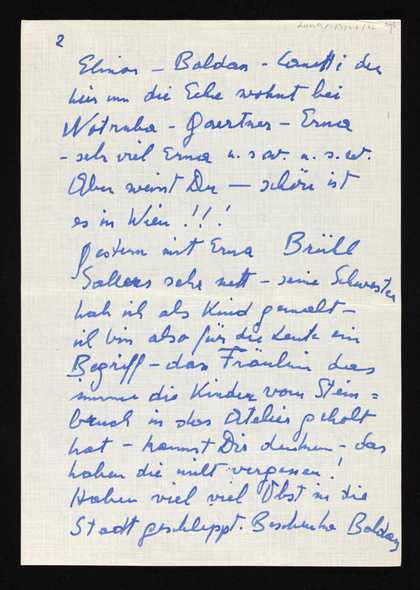 2
Elinor – Boldan – Canetti der
hier um die Ecke wohnt bei
Wotruba – Gaertner – Erna
– sehr viel Erna u. s. w. u. s. w.
Aber weisst Du — schön ist
es in Wien!!!
Gestern mit Erna Brüll
sehr nett – seine Schwester
hab ich als Kind gemalt –
ich bin also für die Leute ein
Begriff – das Fräulein das
immer die Kinder vom Stein=
bruch in das Atelier geholt
hat – kannst Dir denken – das
haben die nicht vergessen!
Haben viel viel Obst in die
Stadt geschleppt. Boldan